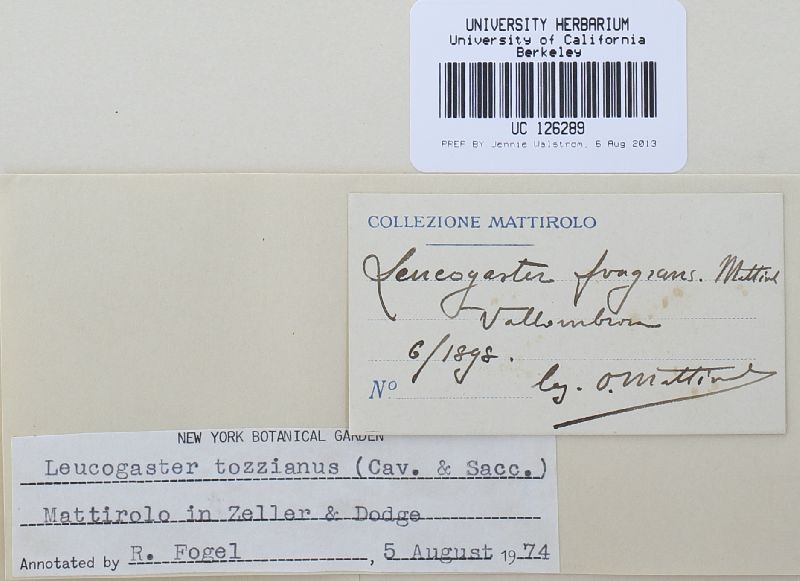 UNIVERSITY HERBARIUM
University of California
Berkeley
UC 126289
PREP BY Jennie Walstrom, 6 Aug 2013
COLLEZIONE MATTIROLO
Leucogaster fragrans. Mattirol
Vallombrosa
6/1898.
No
leg. O. Mattirolo
NEW YORK BOTANICAL GARDEN
Leucogaster tozzianus (Cav. & Sacc.)
Mattirolo in Zeller & Dodge
Annotated by R. Fogel, 5 August 1974